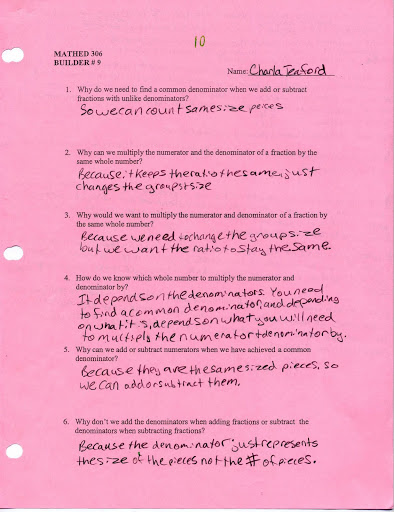 10
MATHED 306
BUILDER # 9
Name: Charla Tenford
1. Why do we need to find a common denominator when we add or subtract
fractions with unlike denominators?
So we can count same size peices
2. Why can we multiply the numerator and the denominator of a fraction by the
same whole number?
Because it keeps the ratio the same, just
changes the groups size
3. Why would we want to multiply the numerator and denominator of a fraction by
the same whole number?
Because we need to change the group size
but we want the ratio to stay the same.
4. How do we know which whole number to multiply the numerator and
denominator by?
It depends on the denominators. You need
to find a common denominator, and depending
on what it is, depends on what you will need
to multiply the numerator + denominator by.
5. Why can we add or subtract numerators when we have achieved a common
denominator?
Because they are the same sized pieces, so
we can add or subtract them.
6. Why don't we add the denominators when adding fractions or subtract the
denominators when subtracting fractions?
Because the denominator just represents
the size of the pieces not the # of pieces.